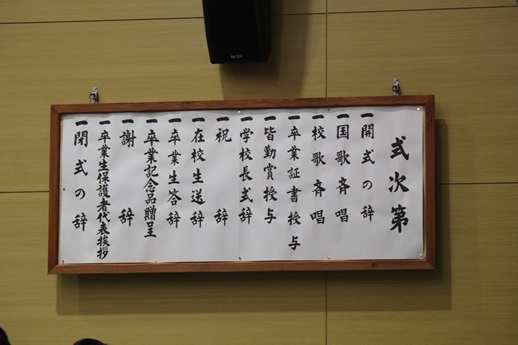 式次第
一開式の辞
一国歌斉唱
一校歌斉唱
一卒業証書授与
一皆勤賞授与
一学校長式辞
一祝辞
一在校生送辞
一卒業生答辞
一卒業記念品贈呈
一謝辞
一卒業生保護者代表挨拶
一閉式の辞